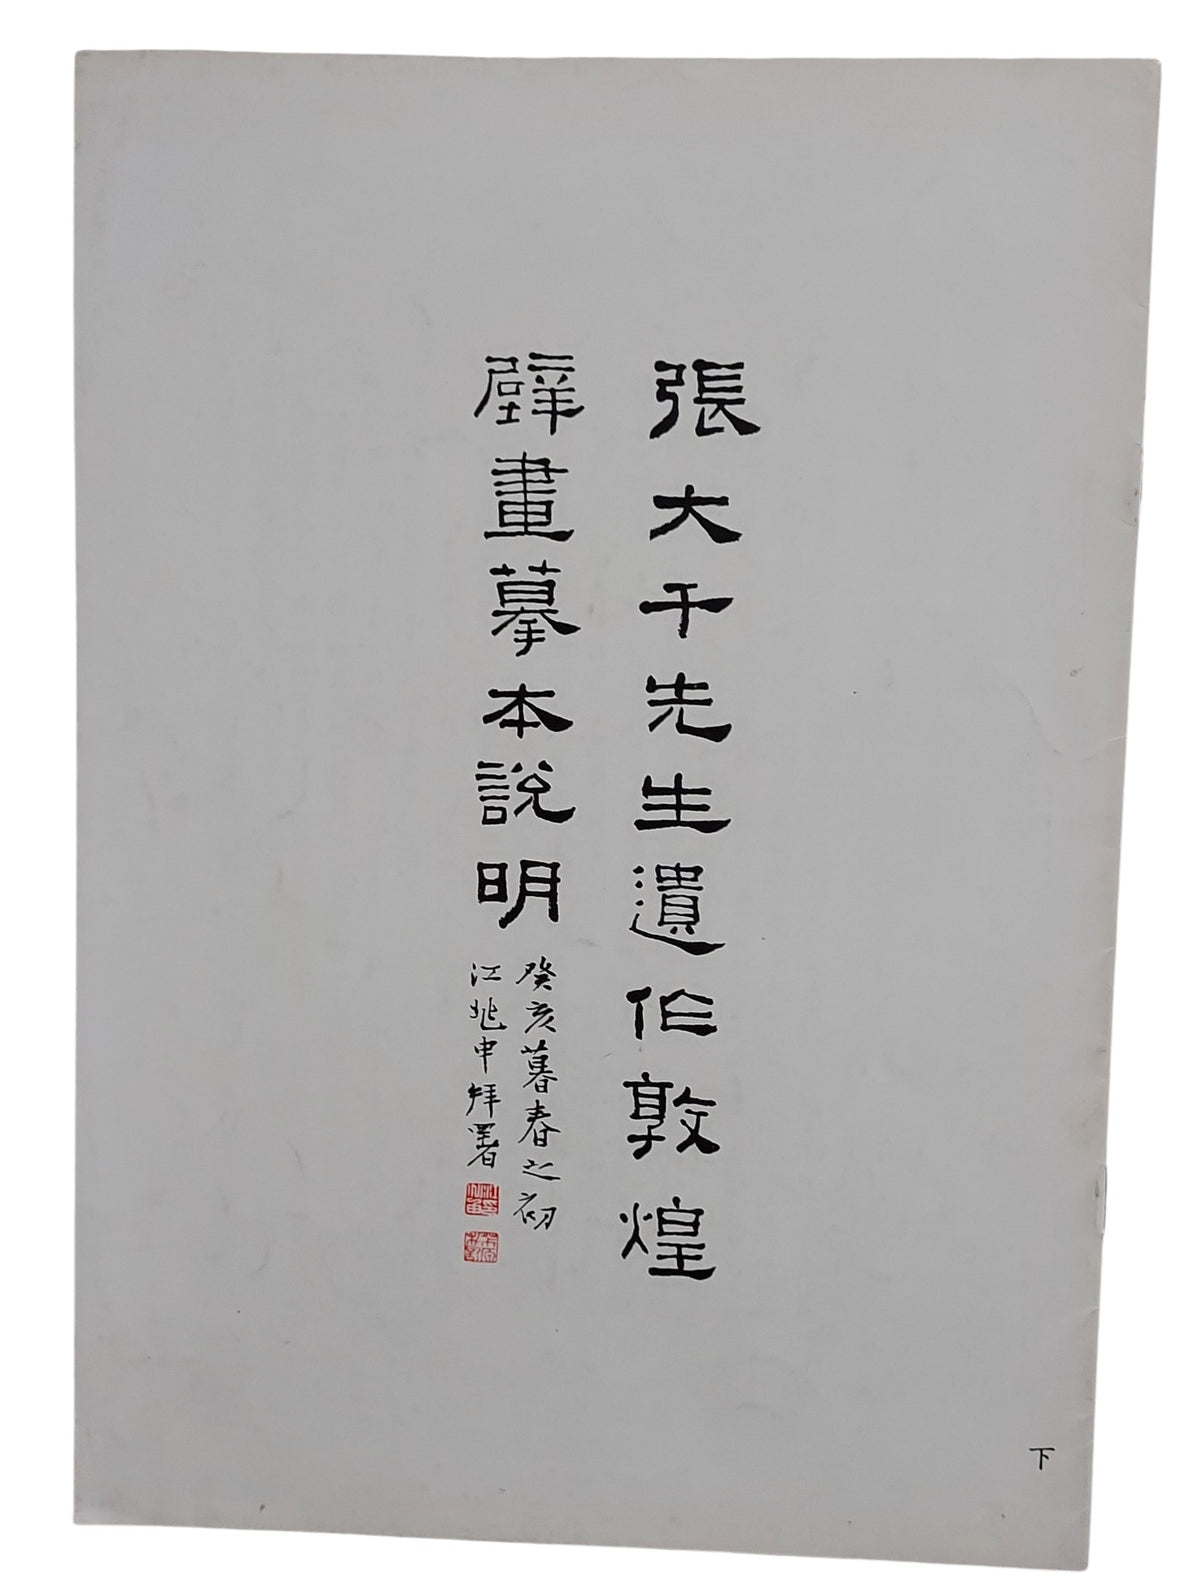 張大千先生遺作敦煌
壁畫摹本説明
癸亥暮春之初
江兆申拜署
下